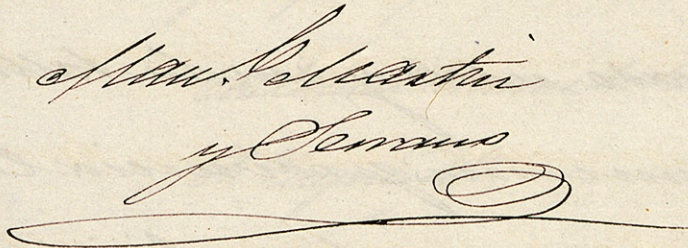 Man. L. Martin
y Serrano